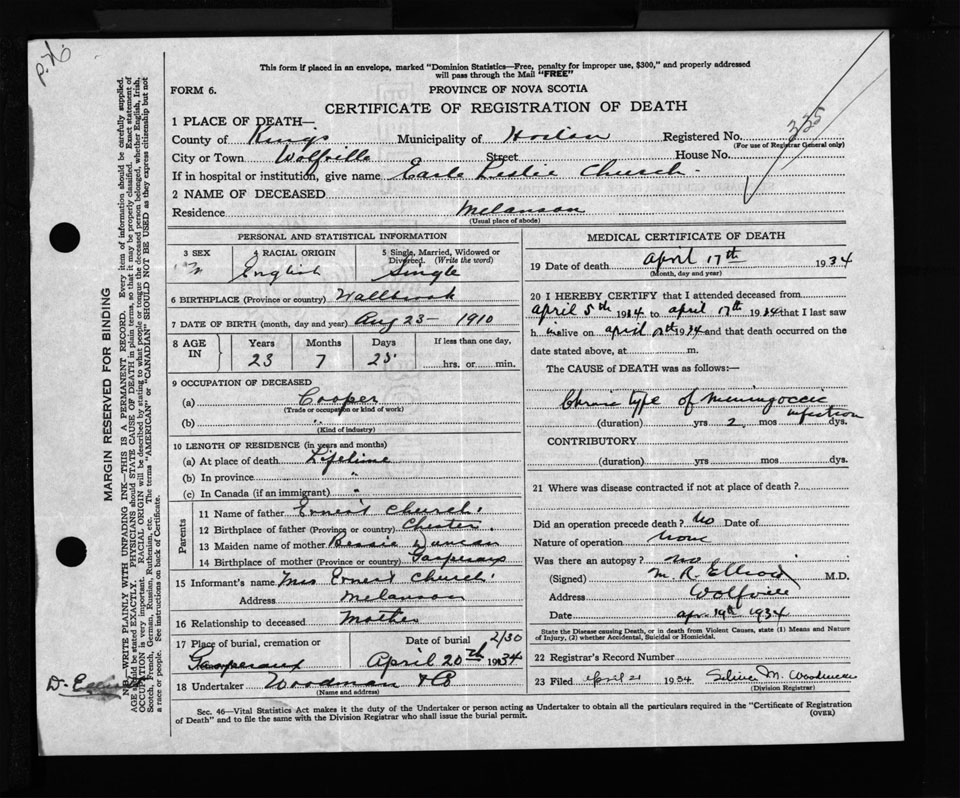 This form if placed in an envelope, marked "Dominion Statistics—Free, penalty for improper use, $300," and properly addressed
will pass through the Mail "FREE"
FORM 6.
PROVINCE OF NOVA SCOTIA
CERTIFICATE OF REGISTRATION OF DEATH
1 PLACE OF DEATH—
County of Kings Municipality of Horton Registered No. 335
(For use of Registrar General only)
City or Town Wolfville Street House No.
If in hospital or institution, give name Earle Leslie Church
2 NAME OF DECEASED
Residence Melanson
(Usual place of abode)
PERSONAL AND STATISTICAL INFORMATION
3 SEX 4 RACIAL ORIGIN 5 Single, Married, Widowed or Divorced. (Write the word)
M English Single
6 BIRTHPLACE (Province or country) Wallbrook
7 DATE OF BIRTH (month, day and year) Aug 23 - 1910
8 AGE IN Years Months Days If less than one day,
23 7 25 hrs. or min.
9 OCCUPATION OF DECEASED
(a) Cooper
(Trade or occupation or kind of work)
(b) "
(Kind of industry)
10 LENGTH OF RESIDENCE (in years and months)
(a) At place of death Lifetime
(b) In province "
(c) In Canada (if an immigrant) "
Parents
11 Name of father Ernest Church
12 Birthplace of father (Province or country) Chester
13 Maiden name of mother Bessie Duncan
14 Birthplace of mother (Province or country) Gaspereaux
15 Informant's name Mrs Ernest Church
Address Melanson
16 Relationship to deceased Mother
17 Place of burial, cremation or Date of burial 2/30
Gaspereaux April 20th 1934
18 Undertaker Woodman & Co
(Name and address)
MEDICAL CERTIFICATE OF DEATH
19 Date of death April 17th 1934
(Month, day and year)
20 I HEREBY CERTIFY that I attended deceased from
April 5th 1934 to April 17th 1934 that I last saw
h im alive on April 17th 1934 and that death occurred on the
date stated above, at m.
The CAUSE of DEATH was as follows:—
Chronic type of meningoccic infection
(duration) yrs 2 mos dys.
CONTRIBUTORY
(duration) yrs mos dys.
21 Where was disease contracted if not at place of death?
Did an operation precede death? No Date of
Nature of operation None
Was there an autopsy? no
(Signed) M. R. Elliott M.D.
Address Wolfville
Date apr. 19th 1934
State the Disease causing Death, or in death from Violent Causes, state (1) Means and
Nature of Injury, (2) whether Accidental, Suicidal or Homicidal.
22 Registrar's Record Number
23 Filed April 21 1934 M. Woodman
(Division Registrar)
Sec. 46—Vital Statistics Act makes it the duty of the Undertaker or person acting as Undertaker to obtain all the particulars required in the "Certificate of Registration
of Death" and to file the same with the Division Registrar who shall issue the burial permit.
(OVER)
MARGIN RESERVED FOR BINDING
N.B.—WRITE PLAINLY WITH UNFADING INK—THIS IS A PERMANENT RECORD. Every item of information should be carefully supplied.
AGE should be stated EXACTLY. PHYSICIANS should STATE CAUSE OF DEATH in plain terms, so that it may be properly classified. Exact statement of
OCCUPATION is very important. RACIAL ORIGIN will be described by stating to what people or tongue the deceased person belonged, whether English, Irish,
Scotch, French, German, Russian, Ruthenian, etc. The terms "AMERICAN" or "CANADIAN" SHOULD NOT BE USED as they express citizenship but not
a race or people. See instructions on back of Certificate.